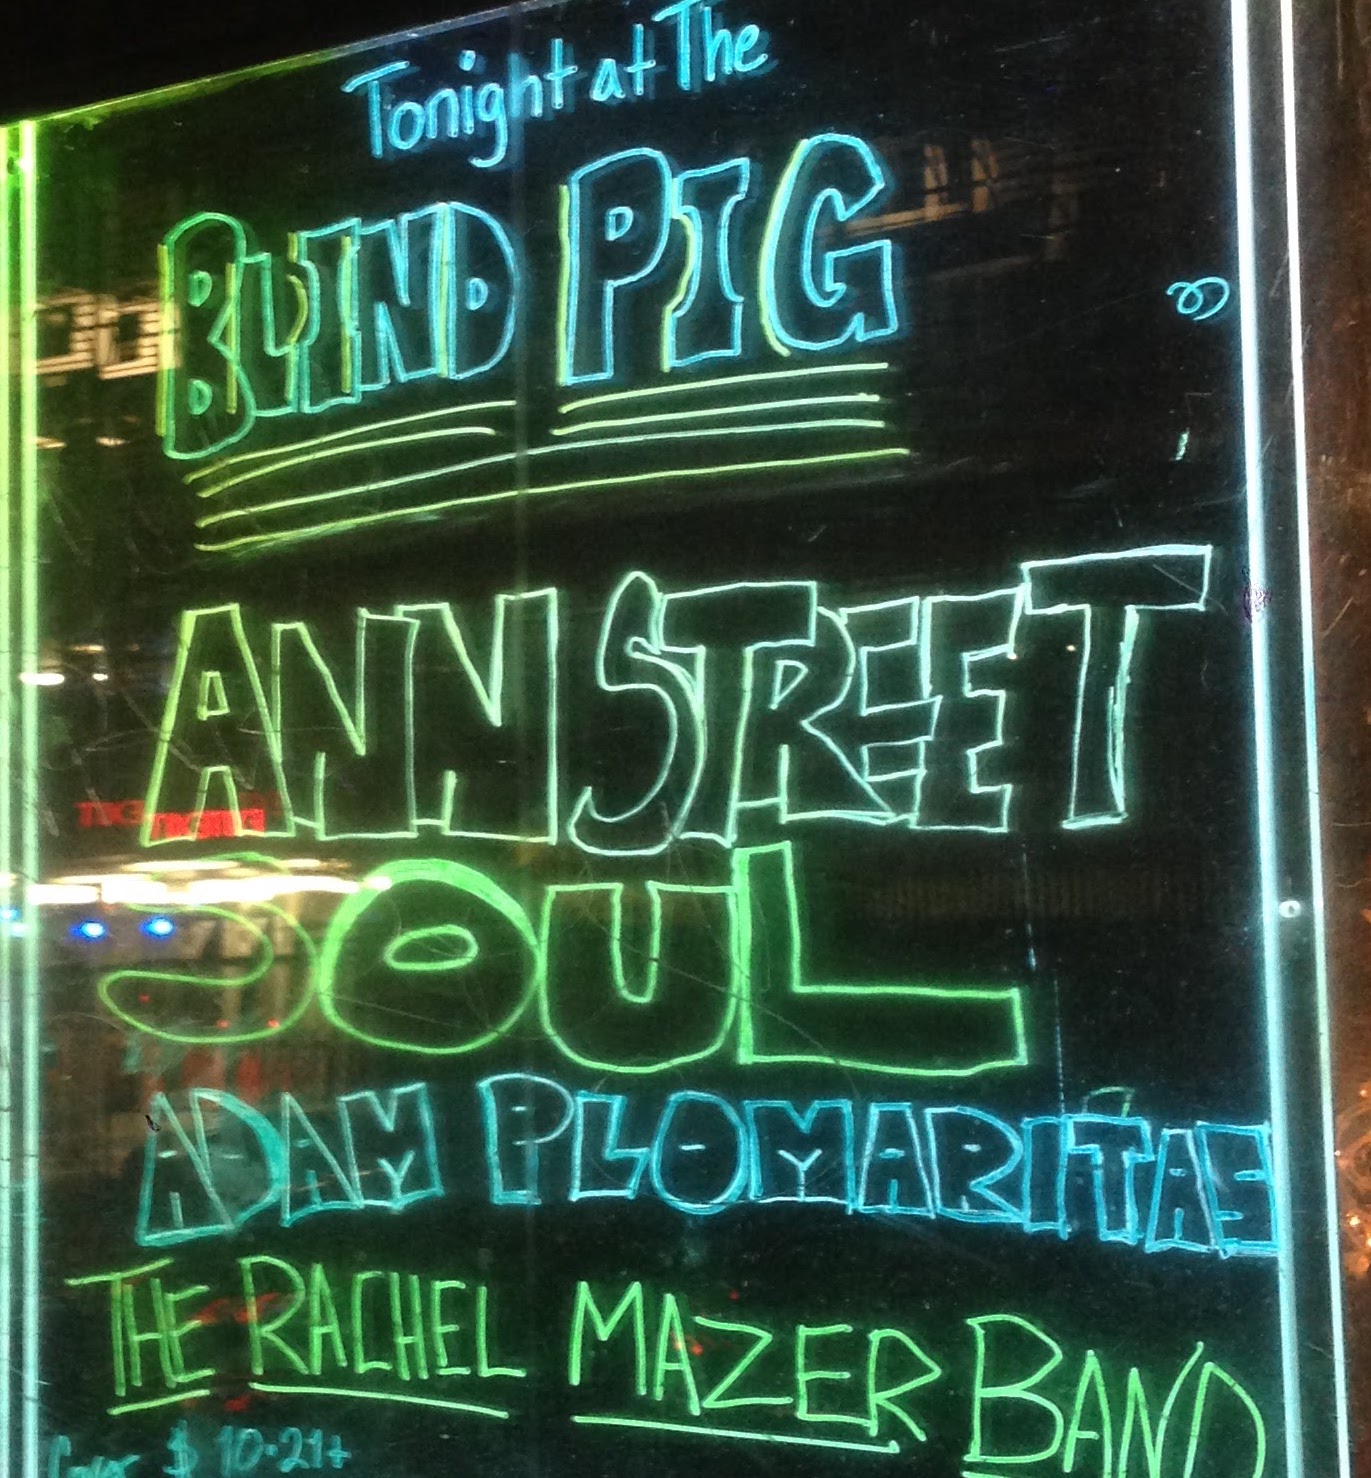 Tonight at The
BLIND PIG
ANN STREET
SOUL
ADAM PLOMARITAS
THE RACHEL MAZER BAND
Cover $ 10.21+